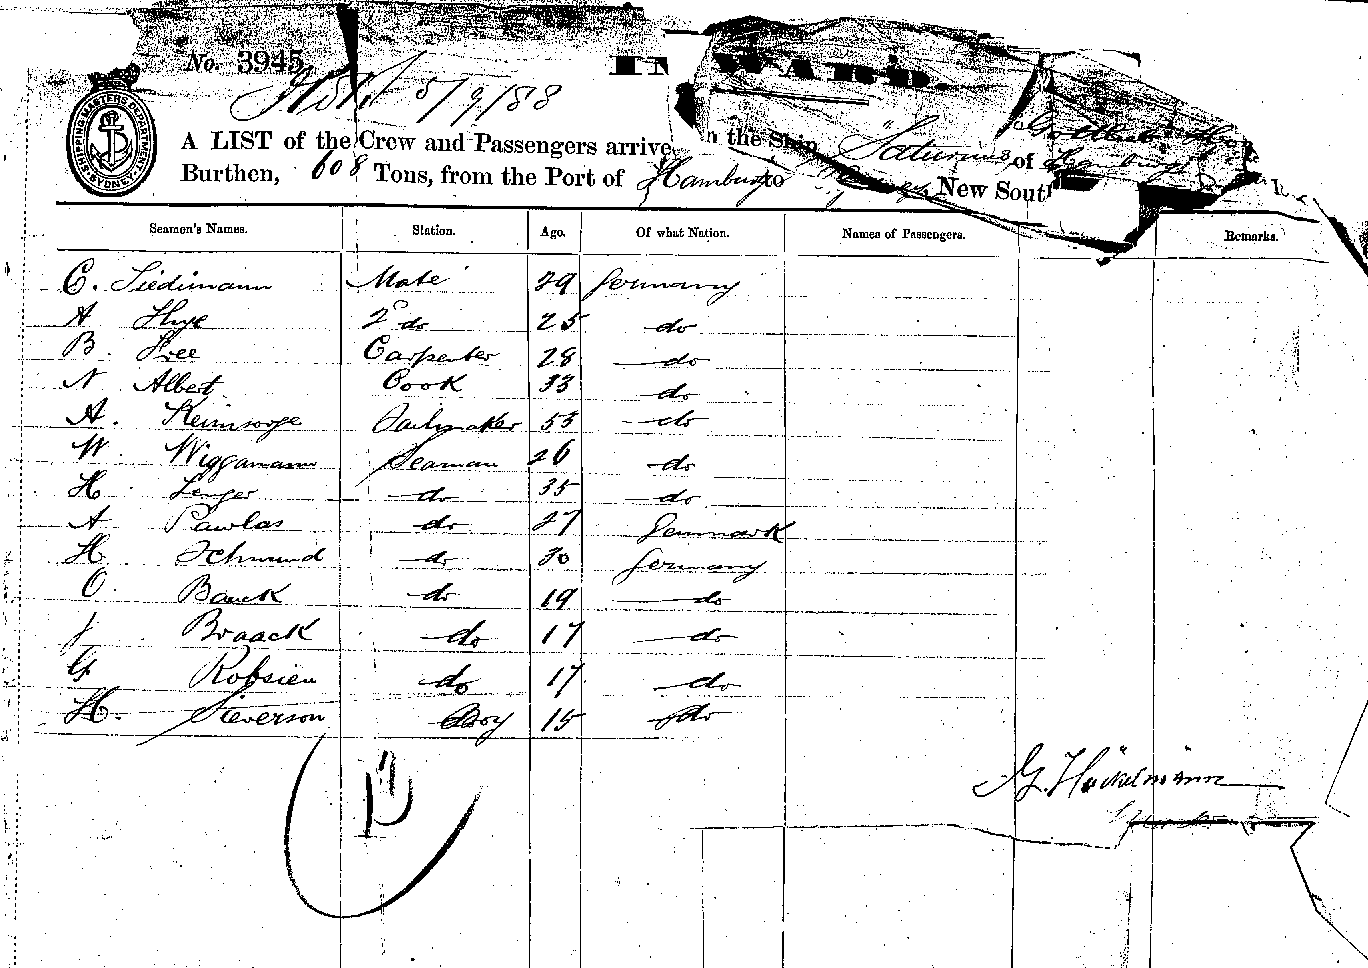 No. 3945
5/9/88
SHIPPING MASTERS DEPARTMENT SYDNEY
A LIST of the Crew and Passengers arrive the Ship "Saturnus" of Hamburg
Burthen, 608 Tons, from the Port of Hamburg to New South
Seamen's Names. Station. Age. Of what Nation. Names of Passengers. Remarks.
C. Siedimann Mate 29 Germany
A 2d do 25 do
B. Free Carpenter 28 do
N Albert Cook 33 do
A. Keimsorge Sailmaker 53 do
W. Wiggamann Seaman 26 do
H Lenger do 35 do
A Pawlas do 27 Denmark
H. Schmund do 30 Germany
O. Banck do 19 do
J Braack do 17 do
G Robsien do 17 do
H. Steverson Boy 15 do
G. Häckelmann